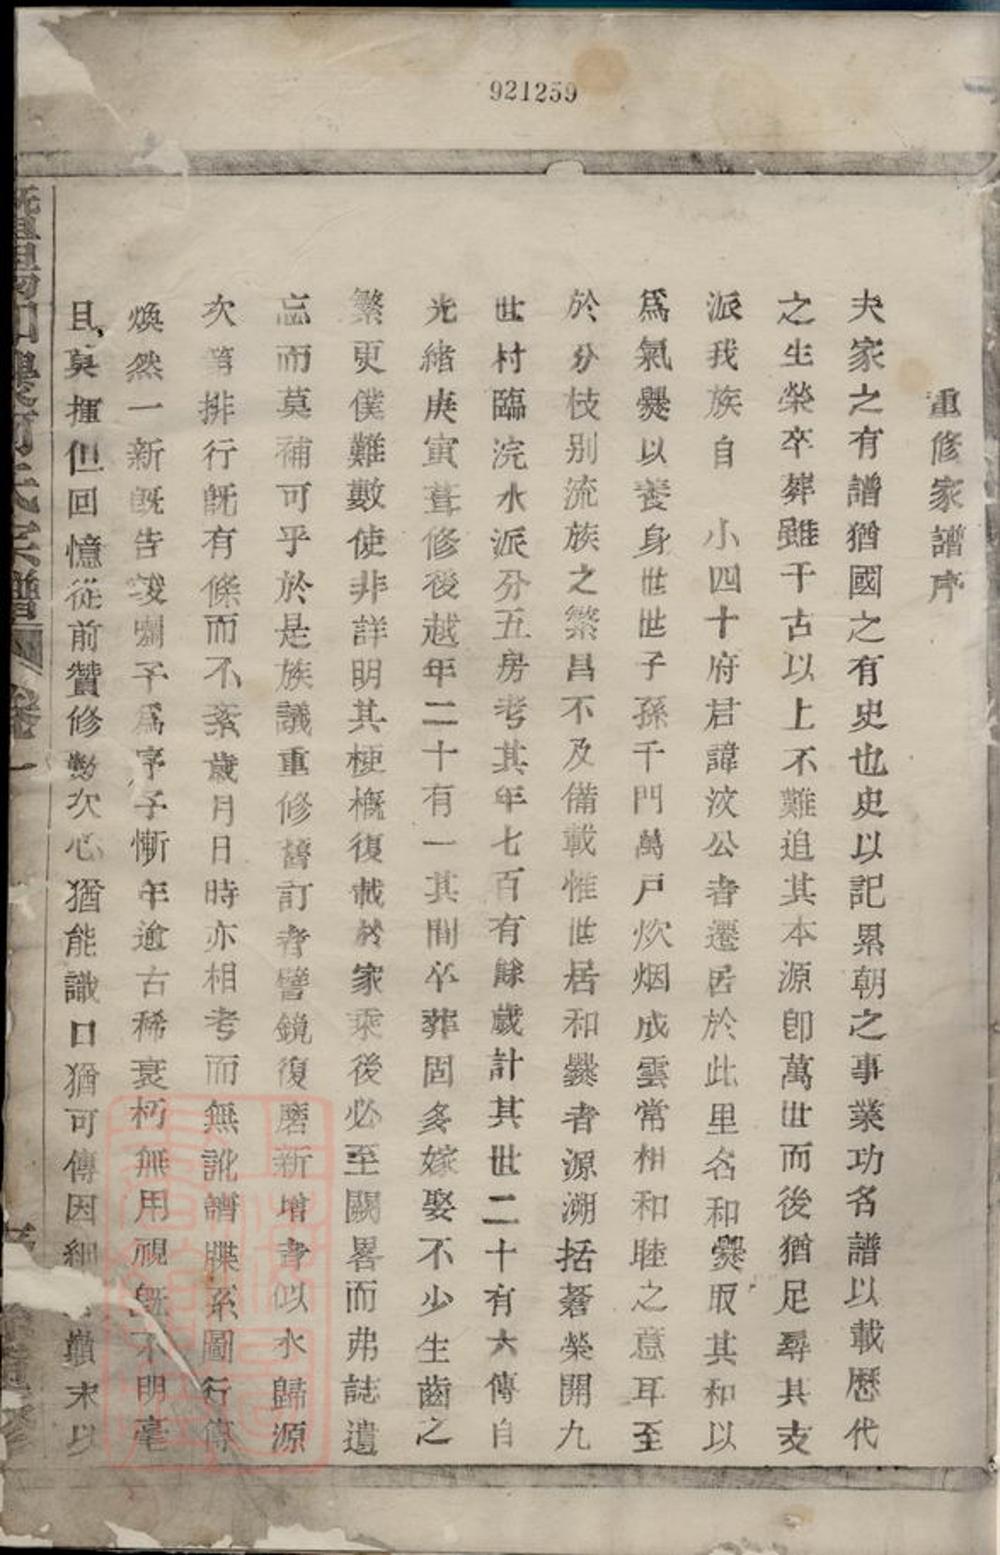 921259
重修家譜序
夫家之有譜猶國之有史也史以記累朝之事業功名譜以載歷代
之生榮卒葬雖千古以上不難追其本源卽萬世而後猶足尋其支
派我族自 小四十府君諱汶公者遷居於此里名和爨取其和以
爲氣爨以養身世世子孫千門萬戸炊烟成雲常相和睦之意耳至
於分枝别流族之繁昌不及備載惟世居和爨者源溯括蒼榮開九
世村臨浣水派分五房考其年七百有餘歲計其世二十有六傳自
光緒庚寅葺修後越年二十有一其間卒葬固多嫁娶不少生齒之
繁更僕難數使非詳明其梗概復載於家乘後必至闕畧而弗誌遺
忘而莫補可乎於是族議重修舊訂者譬鏡復磨新增者似水歸源
次第排行旣有條而不紊歲月日時亦相考而無訛譜牒系圖行傳
煥然一新旣告竣囑予爲序予慚年逾古稀衰朽無用視旣不明毫
且莫揮但回憶從前贊修數次心猶能識口猶可傳因細 巔末以
和爨 氏宗譜 卷一